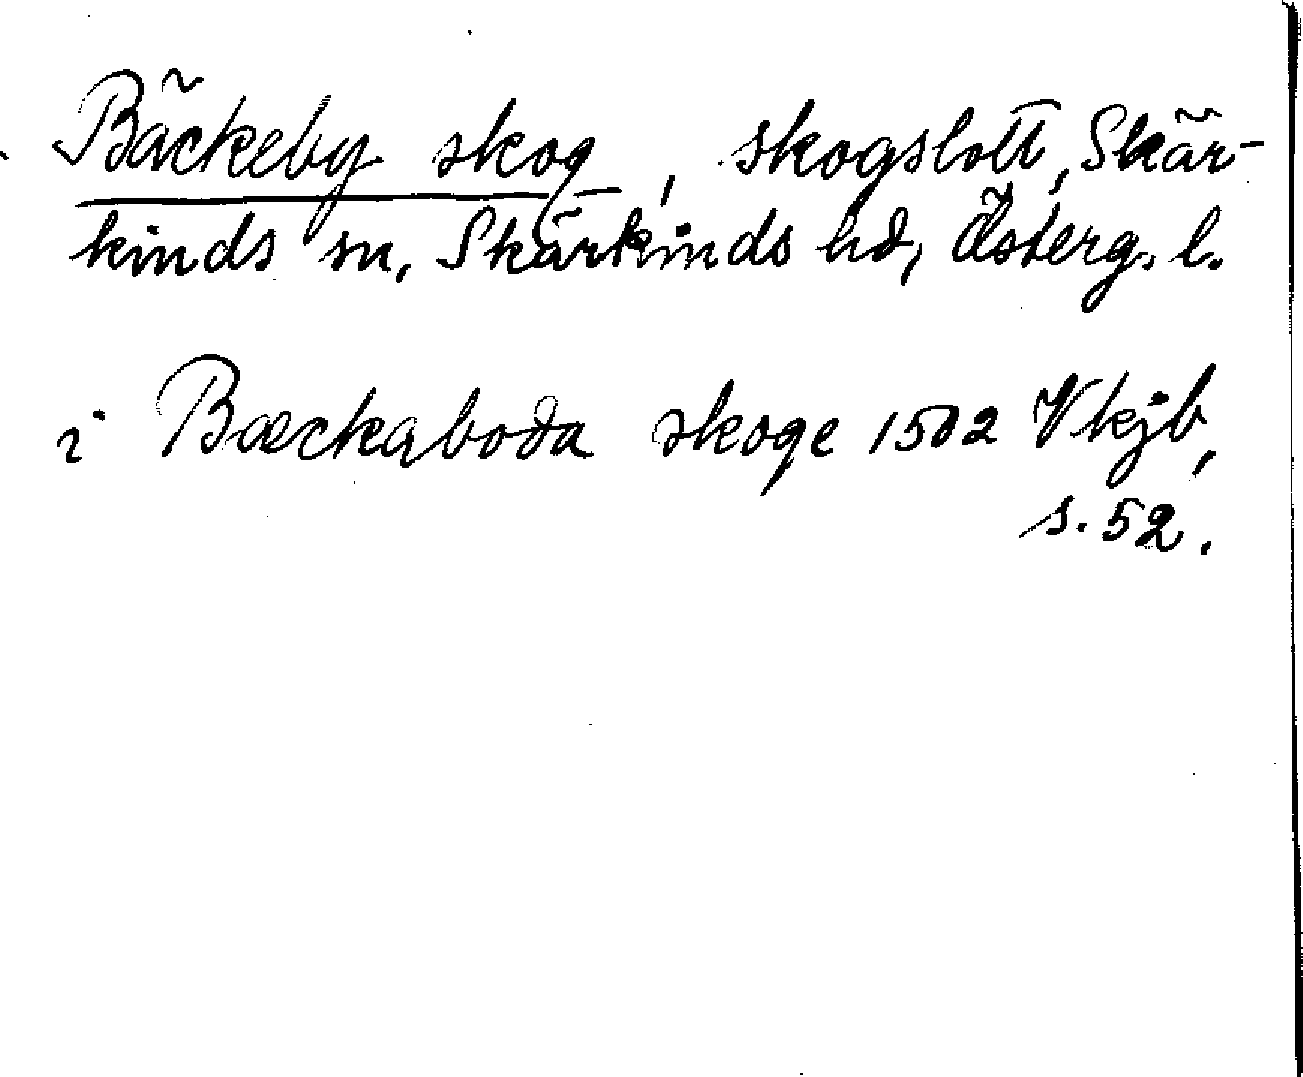 Bäckeby skog, skogslott, Skär-
kinds sn, Skärkinds hd, Österg. l.
i Bæckaboda skoge 1502 Vkjb,
s. 52.